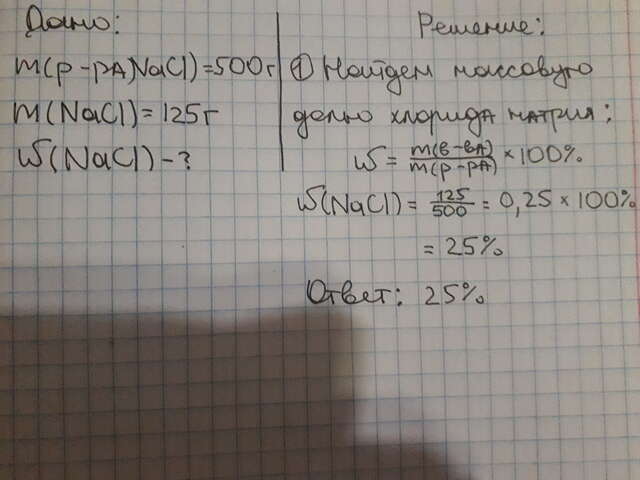 Дано:
m(р-рА NaCl)=500г
m(NaCl)=125г
ω(NaCl)-?
Решение:
① Найдем массовую
долю хлорида натрия:
ω = m(в-вА)/m(р-рА) × 100%
ω(NaCl) = 125/500 = 0,25 × 100%
= 25%
Ответ: 25%